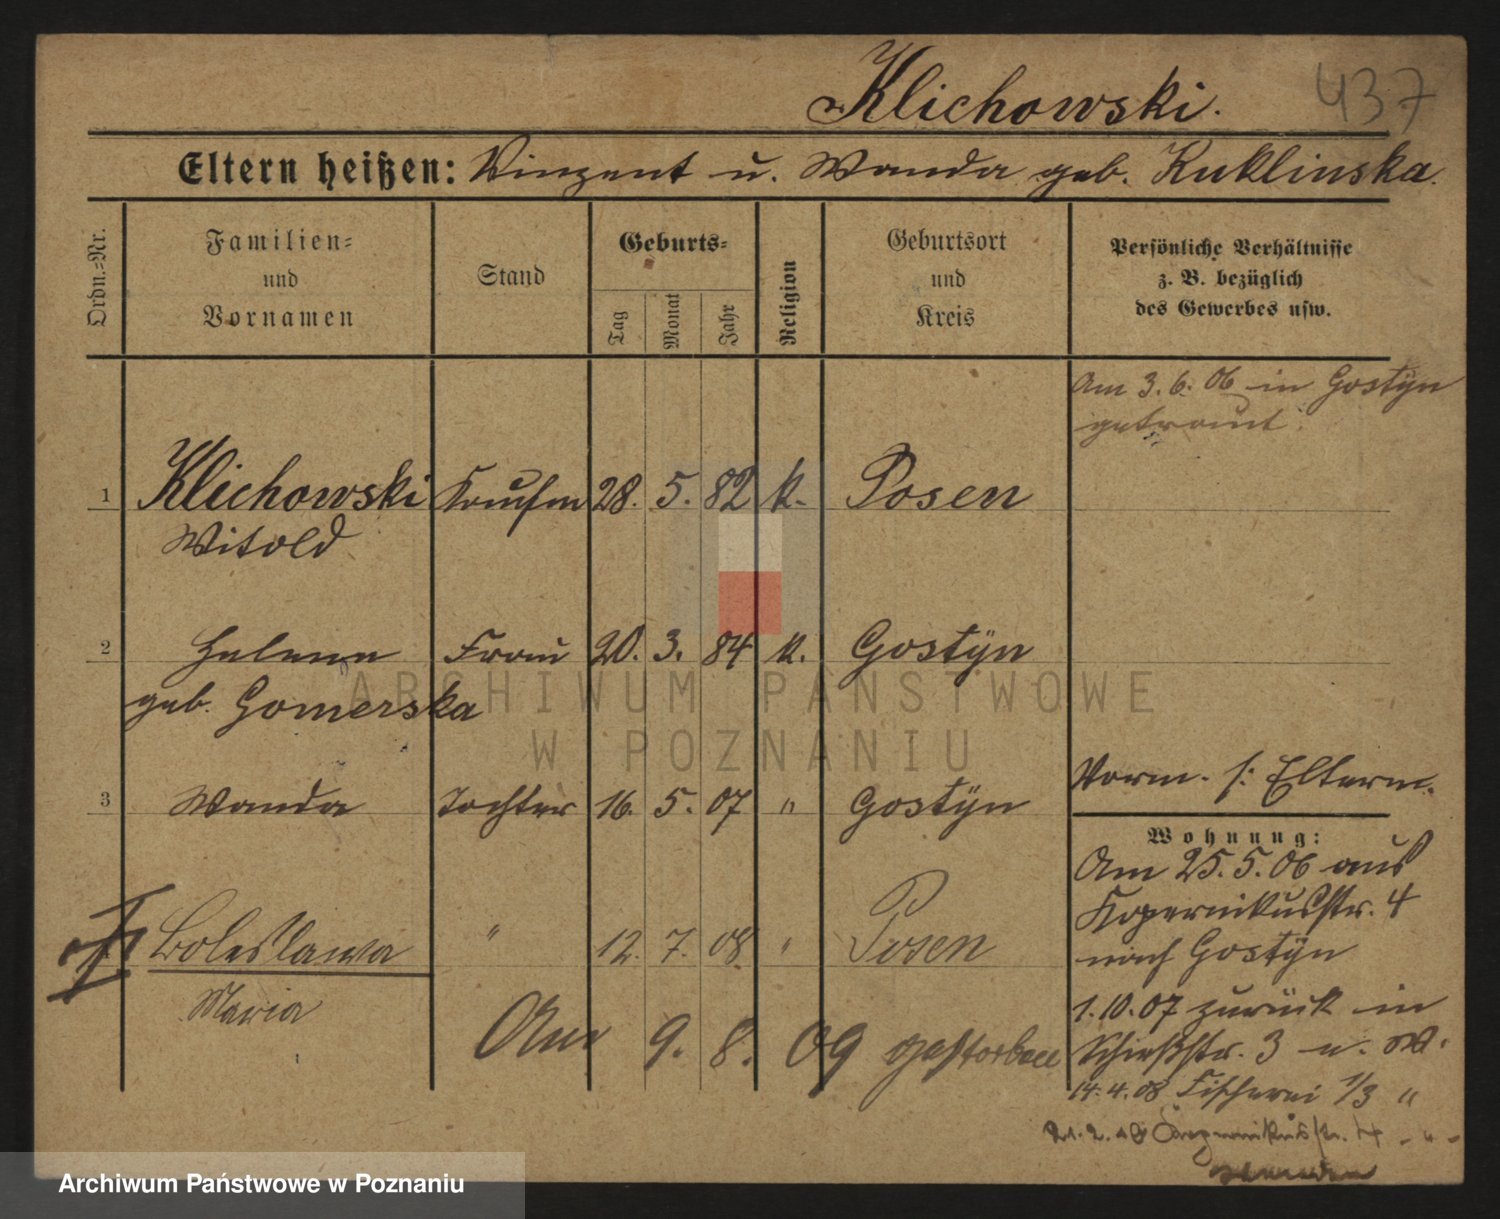 Klichowski.
437
Eltern heißen: Vinzent u. Wanda geb. Kuklinska.
Ordn.-Nr.
Familien-
und
Vornamen
Stand
Geburts-
Tag
Monat
Jahr
Religion
Geburtsort
und
Kreis
Persönliche Verhältnisse
z. B. bezüglich
des Gewerbes usw.
Am 3. 6. 06 in Gostÿn
getraut.
1 Klichowski Kaufm 28. 5. 82 k. Posen
Witold
2 Helene Frau 20. 3. 84 k. Gostÿn
geb. Gomerska
ARCHIWUM PAŃSTWOWE
W POZNANIU
Vorm. s: Elterm.
3 Wanda Tochter 16. 5. 07 " Gostÿn
Wohnung:
Am 25. 5. 06 aus
Kopernikusstr. 4
nach Gostÿn
Boleslawa " 12. 7. 08 " Posen
Maria
1. 10. 07 zurück in
Am 9. 8. 09 gestorben
Schießstr. 3 u. W.
14. 4. 08 Fischerei 1/3 "
21. 2. Kopernikusstr. 4 - " -
Archiwum Państwowe w Poznaniu